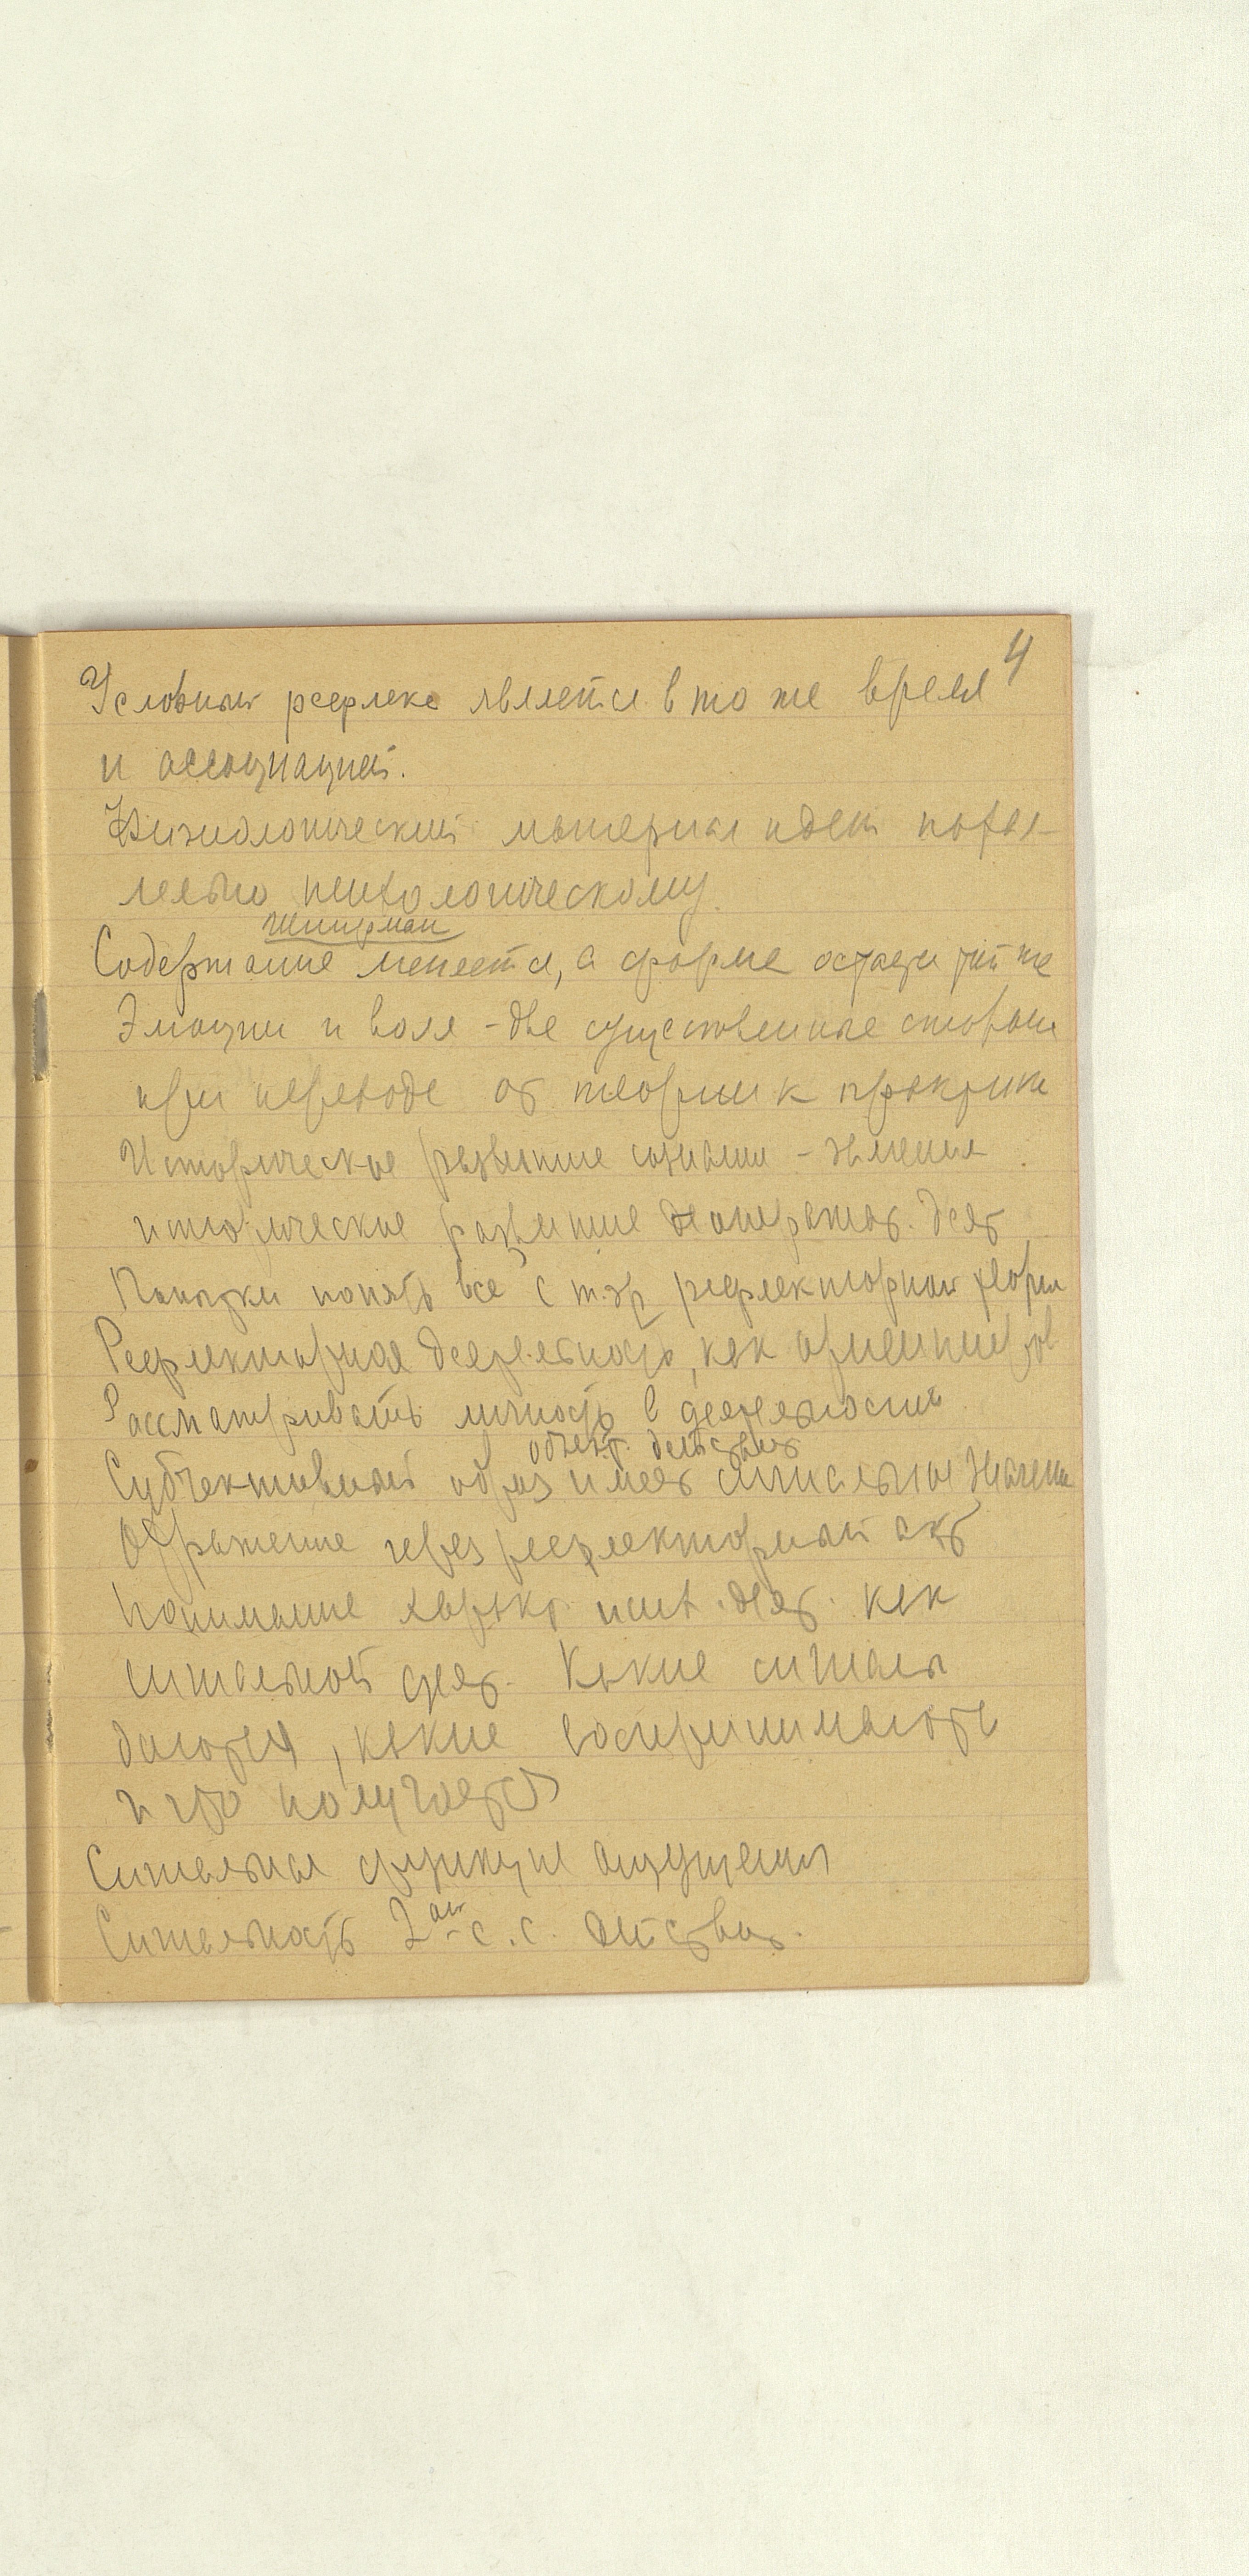 4
Условный рефлекс является в то же время
и ассоциацией.
Физиологический материал идет парал-
лельно психологическому.
Шнирман
Содержание меняется, а форма остается той же
Эмоции и воля - две существенные стороны
при переходе от теории к практике
Историческое развитие сознания - явления
историческое развитие деят
Попытки понять все с т.зр рефлекторной теории
Рефлекторная деятельность, как ориентиров
Рассматривать личность в деятельности
объект. действует
Субъективный образ имеет сигнальное значение
Отражение через рефлекторный акт
Понимание псих. деят. как
сигнальной деят. Какие сигналы
даются, какие воспринимаются
и что получается
Сигнальная функция ощущения
Сигнальность 2ой с.с. действит.